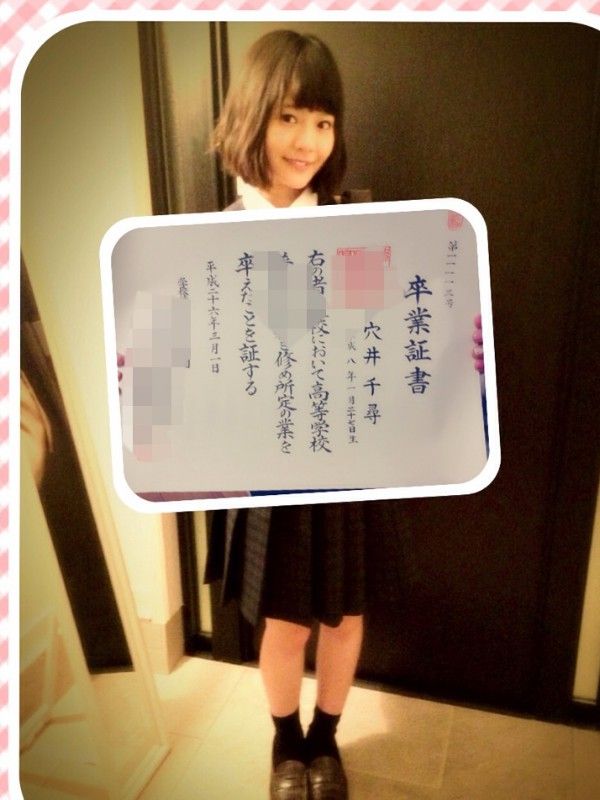 卒業証書
穴井千尋
平成八年一月二十七日生
右の者 校において高等学校
を修め所定の業を
卒えたことを証する
平成二十六年三月一日